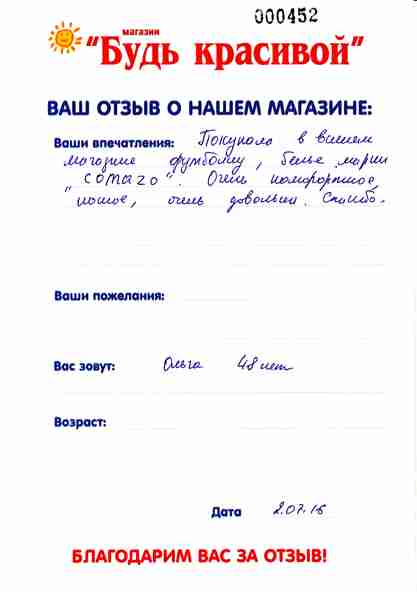 000452
магазин
"Будь красивой"
ВАШ ОТЗЫВ О НАШЕМ МАГАЗИНЕ:
Ваши впечатления: Покупала в вашем
магазине футболку, белье марки
"comazo". Очень комфортное,
очень довольна. Спасибо.
Ваши пожелания:
Вас зовут: Ольга 48 лет
Возраст:
Дата 2.07.16
БЛАГОДАРИМ ВАС ЗА ОТЗЫВ!